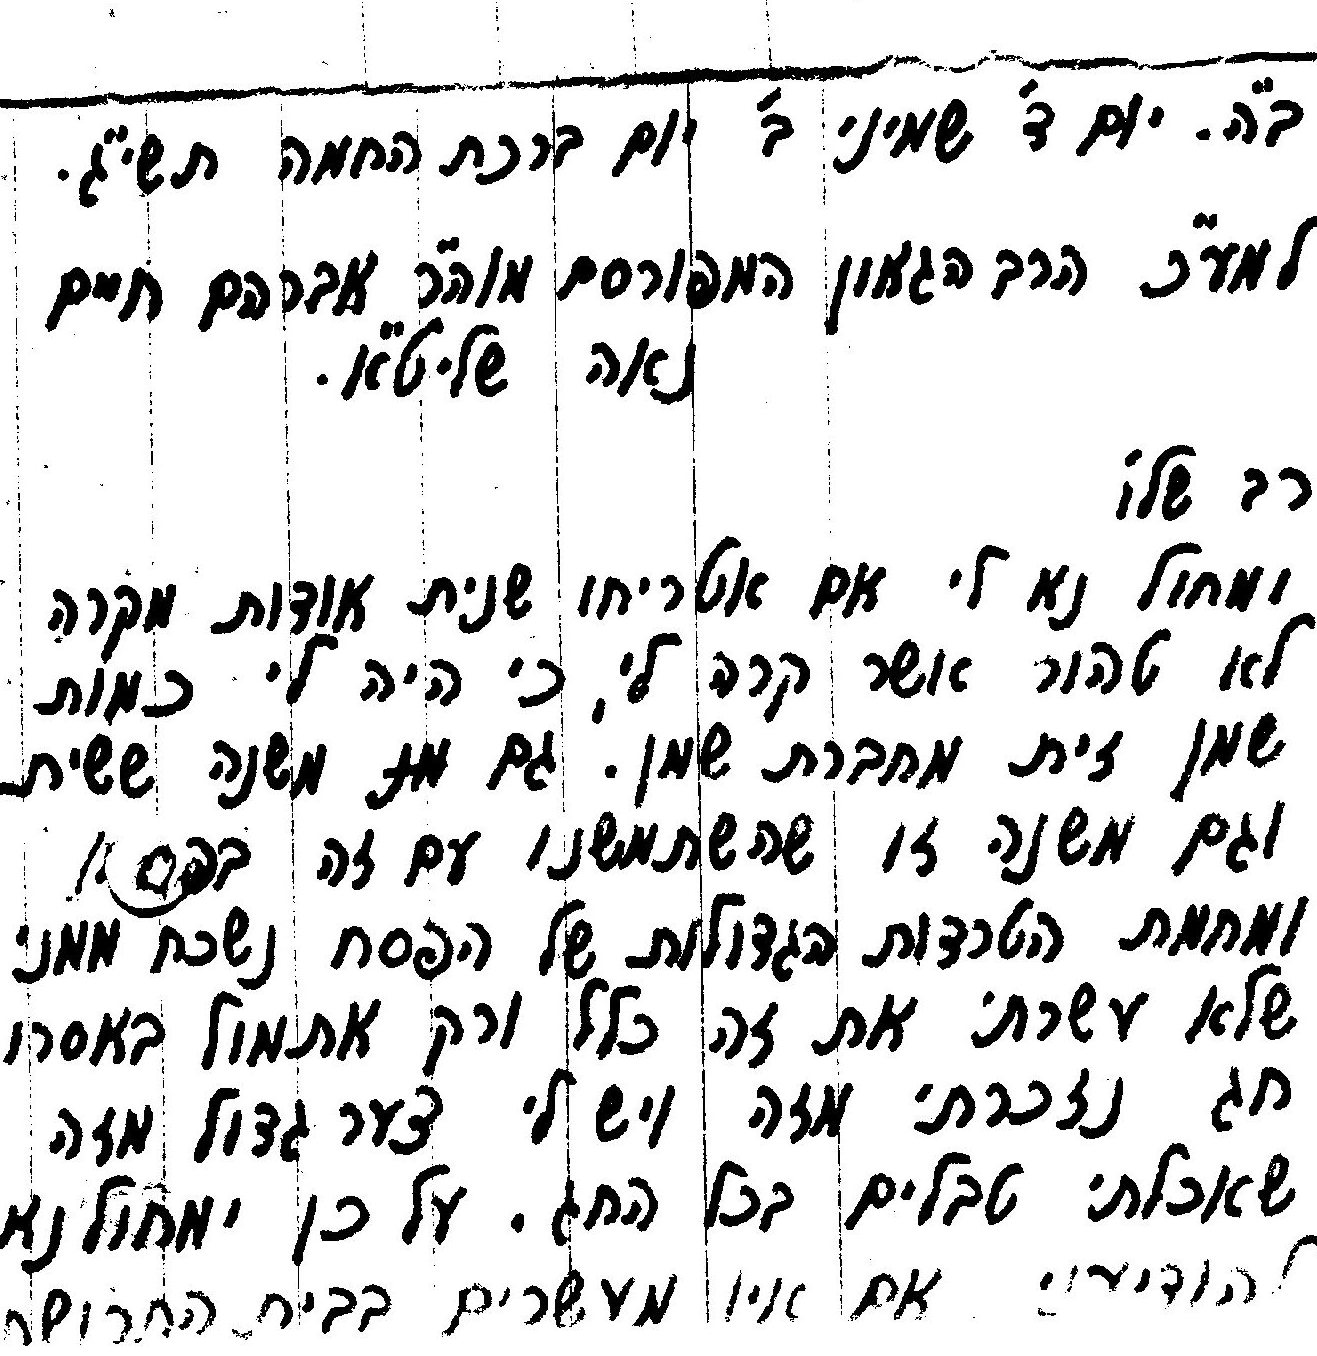 ב"ה. יום ד' שמיני ב' יום ברכת החמה תשי"ג.
למע"כ הרב הגאון המפורסם מוה"ר אברהם חיים
נאה שליט"א.
רב שלו'
ימחול נא לי אם אטריחו שנית אודות מקרה
לא טהור אשר קרה לי, כי היה לי כמות
שמן זית מחברת שמן. גם מן משנה ששית
וגם משנה זו שהשתמשנו עם זה
ומחמת הטרדות הגדולות של הפסח נשכח ממני
שלא עשרתי את זה כלל ורק אתמול באסרו
חג נזכרתי מזה ויש לי צער גדול מזה
שאכלתי טבלים בכל החג. על כן ימחול נא
להודיעני אם אינו מעשרים בבית החרושת